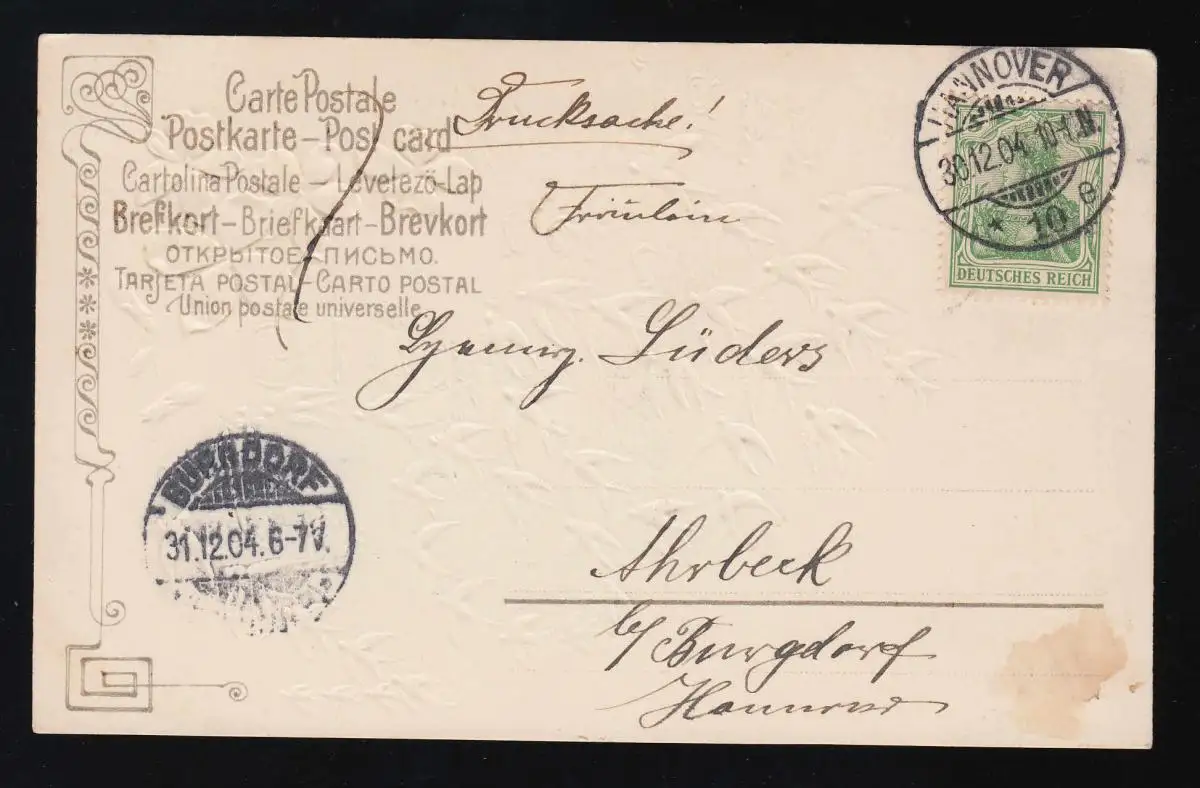 Carte Postale
Postkarte – Post card
Cartolina Postale – Levetező-Lap
Brefkort – Briefkaart – Brevkort
ОТКРЫТОЕ ПИСЬМО.
TARJETA POSTAL – CARTO POSTAL
Union postale universelle
Drucksache!
Fräulein
HANNOVER
30.12.04. 10-11N.
* 10 e
DEUTSCHES REICH
Lüders
BURGDORF
31.12.04. 6-7V.
Ahrbeck
b/ Burgdorf
Hannover